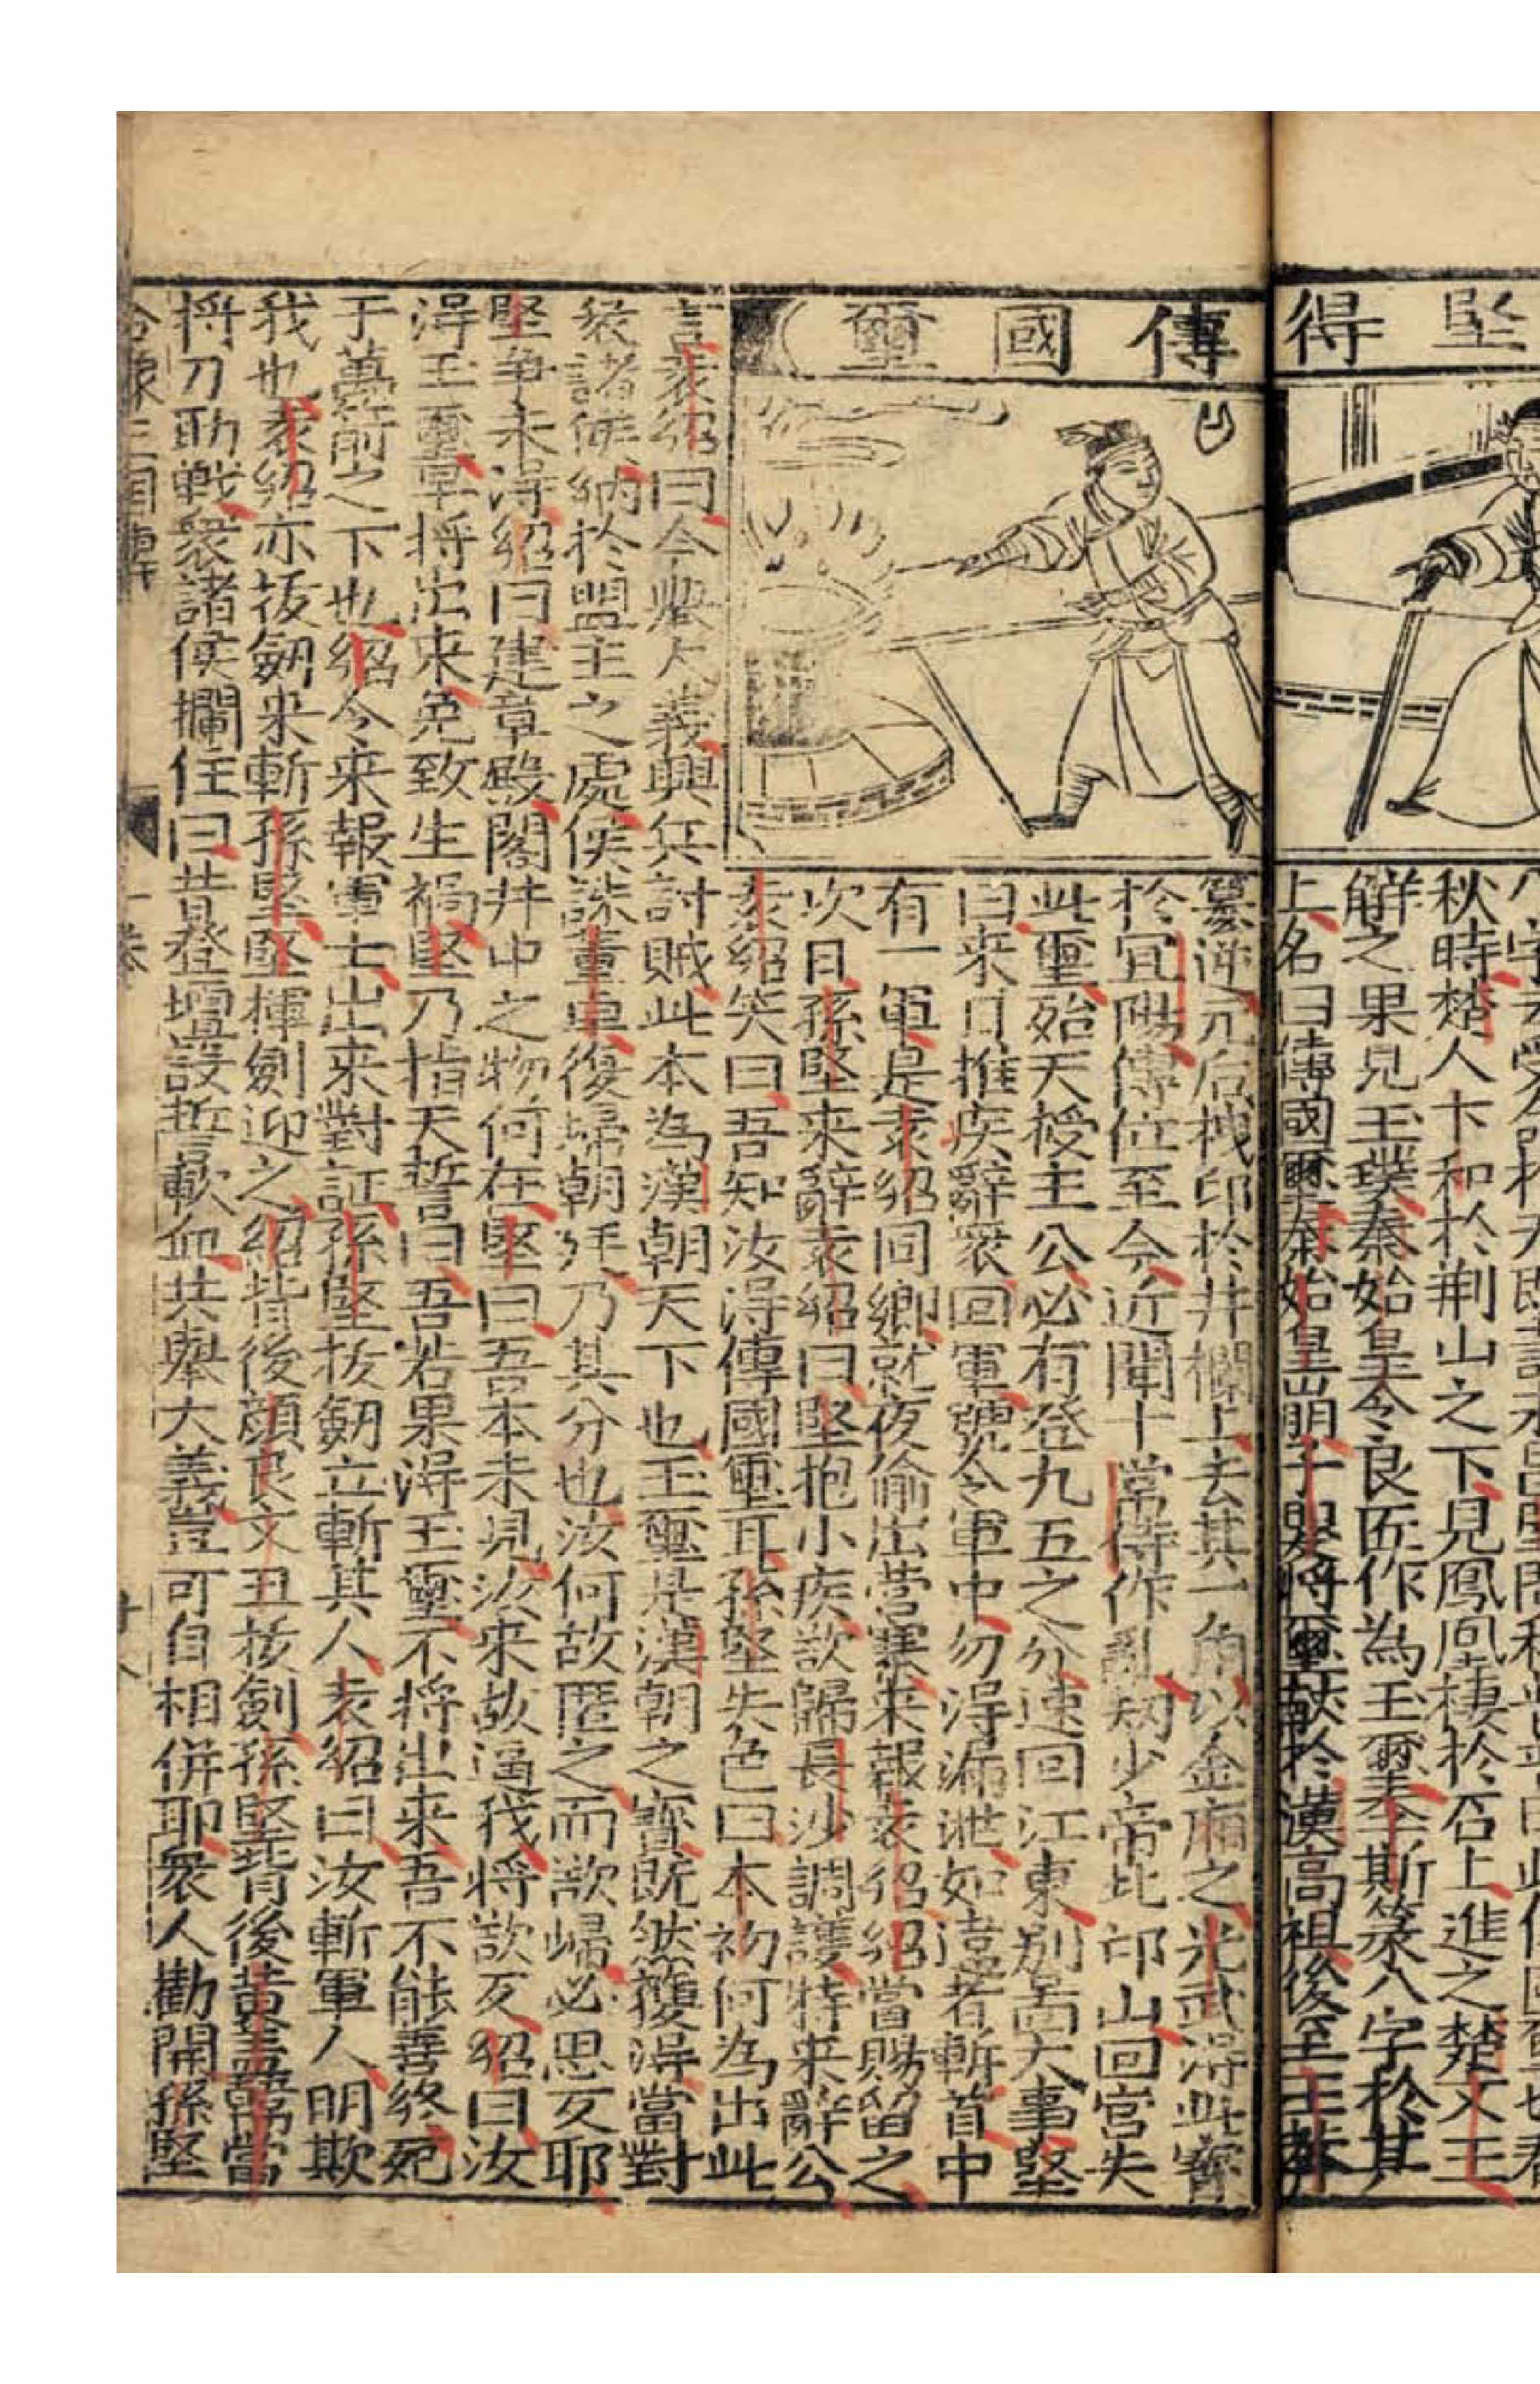 堅得
傳國璽
秋時楚人卞和於荆山之下見鳳凰棲於石上進之楚文王
觧之果見玉璞秦始皇令良匠作為玉璽李斯篆八字於其
上名曰傳國璽秦始皇崩子嬰將璽献於漢高祖後至王莽
篡逆元后拽印於井欄上去其一角以金廂之光武淂此寳
於冝陽傳位至今近聞十常侍作亂刼少帝北邙山回宫失
此璽始天授主公必有登九五之分速回江東别啚大事堅
曰来日推疾辭衆回軍號令軍中勿淂漏泄如違者斬首中
有一軍是袁紹同鄉就夜偷出营寨来報袁紹紹當賜留之
次日孫堅来辭袁紹曰堅抱小疾欲歸長沙調護特来辭公
袁紹笑曰吾知汝淂傳國璽耳孫堅失色曰本初何為出此
言袁紹曰今舉大義興兵討賊此本為漢朝天下也玉璽是漢朝之寳既然獲淂當對
衆諸侯納於盟主之處侯誅董卓復歸朝廷乃其分也汝何故匿之而欲歸必思反耶
堅争未淂紹曰建章殿閣井中之物何在堅曰吾本未見汝来故逼我将欲反紹曰汝
淂玉璽早将出来免致生禍堅乃指天誓曰吾若果淂玉璽不将出来吾不能善終死
于萬箭之下也紹令来報軍士出来對証孫堅拔劒立斬其人袁紹曰汝斬軍人明欺
我也袁紹亦拔劒来斬孫堅堅揮劍迎之紹背後顔良文丑拔劍孫堅背後黄盖韓當
将刀助戰衆諸侯攔住曰昔登壇設誓歃血共舉大義豈可自相併耶衆人勸開孫堅